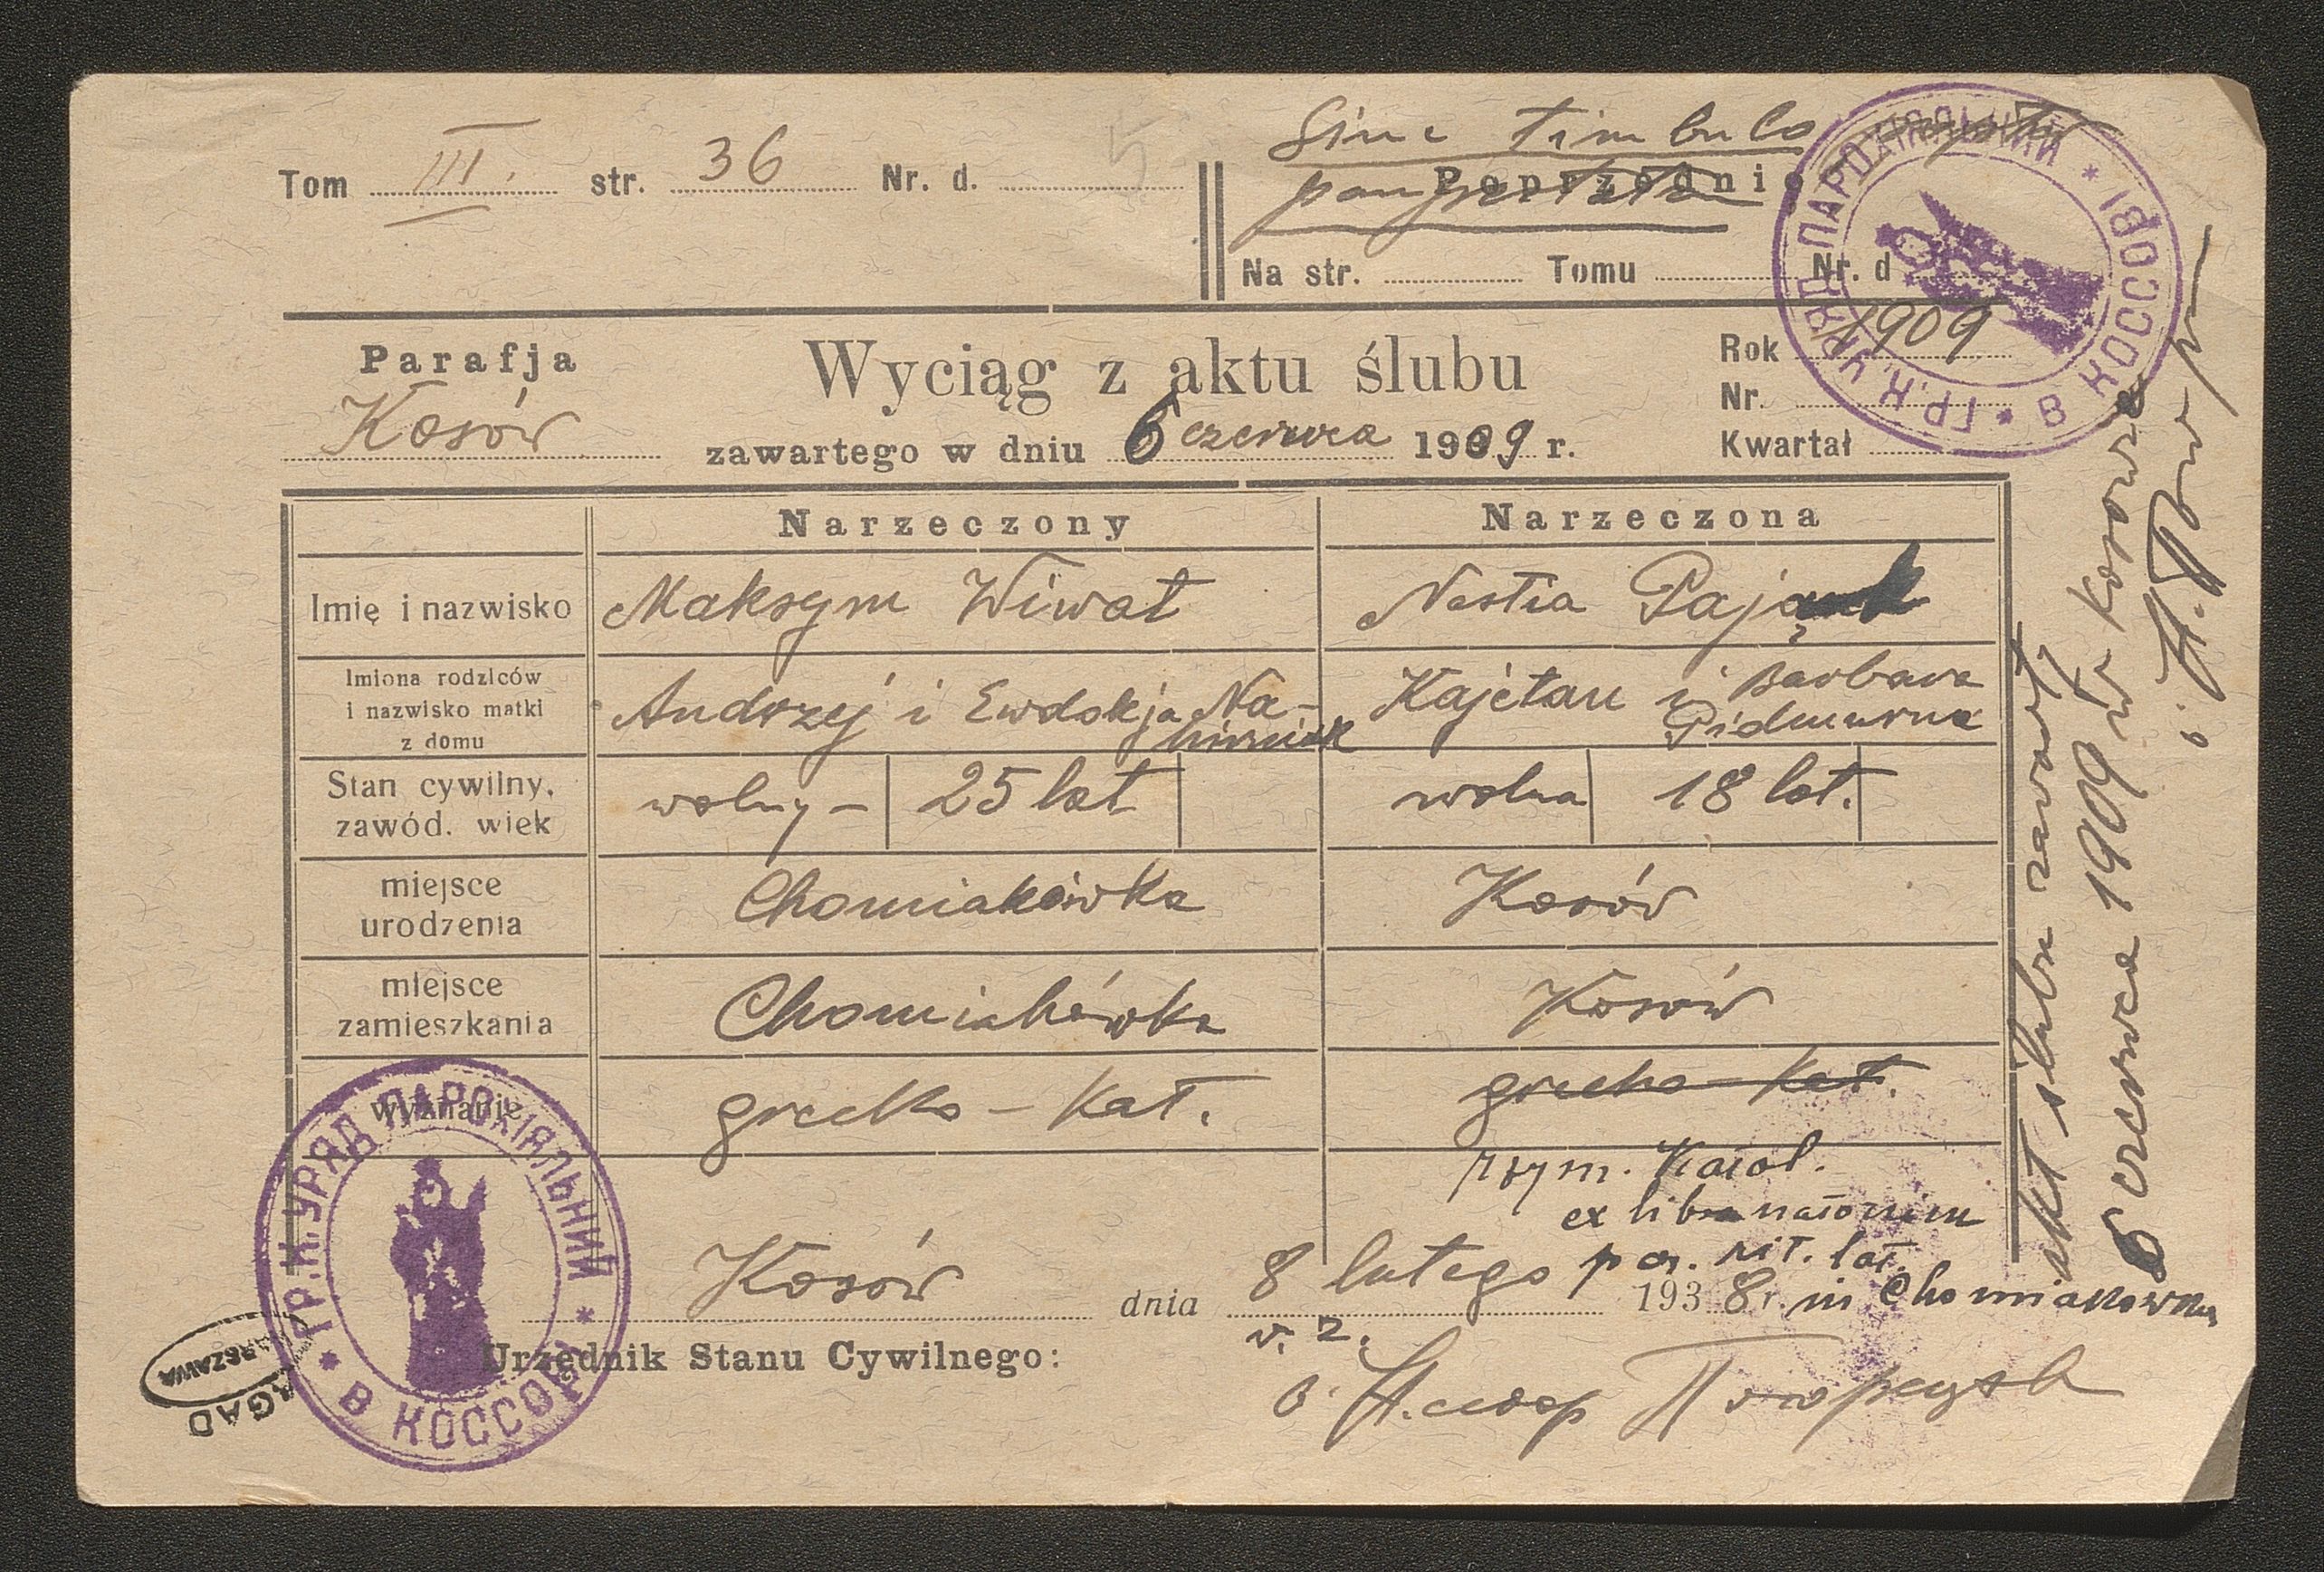 Tom III. str. 36 Nr. d.
Sine timbulo
Poprzednio
Na str. Tomu Nr. d
Parafja
Kosów
Wyciąg z aktu ślubu
zawartego w dniu 6 czerwca 1909 r.
Rok 1909
Nr.
Kwartał
Narzeczony Narzeczona
Imię i nazwisko Maksym Wiwat Nastia Pająk
Imiona rodziców
i nazwisko matki
z domu
Andrzej i Ewdokja
Kajetan i Barbara
Stan cywilny,
zawód, wiek
wolny – 25 lat wolna 18 lat.
miejsce
urodzenia
Chomiakówka Kosów
miejsce
zamieszkania
Chomiakówka Kosów
wyznanie grecko – kat. grecko – kat.
rzym. Katol.
ex libro natorum
par. rit. lat.
in Chomiakowka
Kosów dnia 8 lutego 1938 r.
w. z.
Urzędnik Stanu Cywilnego:
akt ślubu zawarty
6 czerwca 1909 w Kosowie
ГР.К. УРЯД ПАРОХІЯЛЬНИЙ * В КОССОВІ *
ГР.К. УРЯД ПАРОХІЯЛЬНИЙ * В КОССОВІ *
AGAD
WARSZAWA